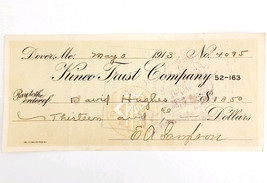 Dover, Me. May 3 1913 No. 4095
Kineo Trust Company 52-163
Pay to the order of David Hughes $13.50
Thirteen and Dollars